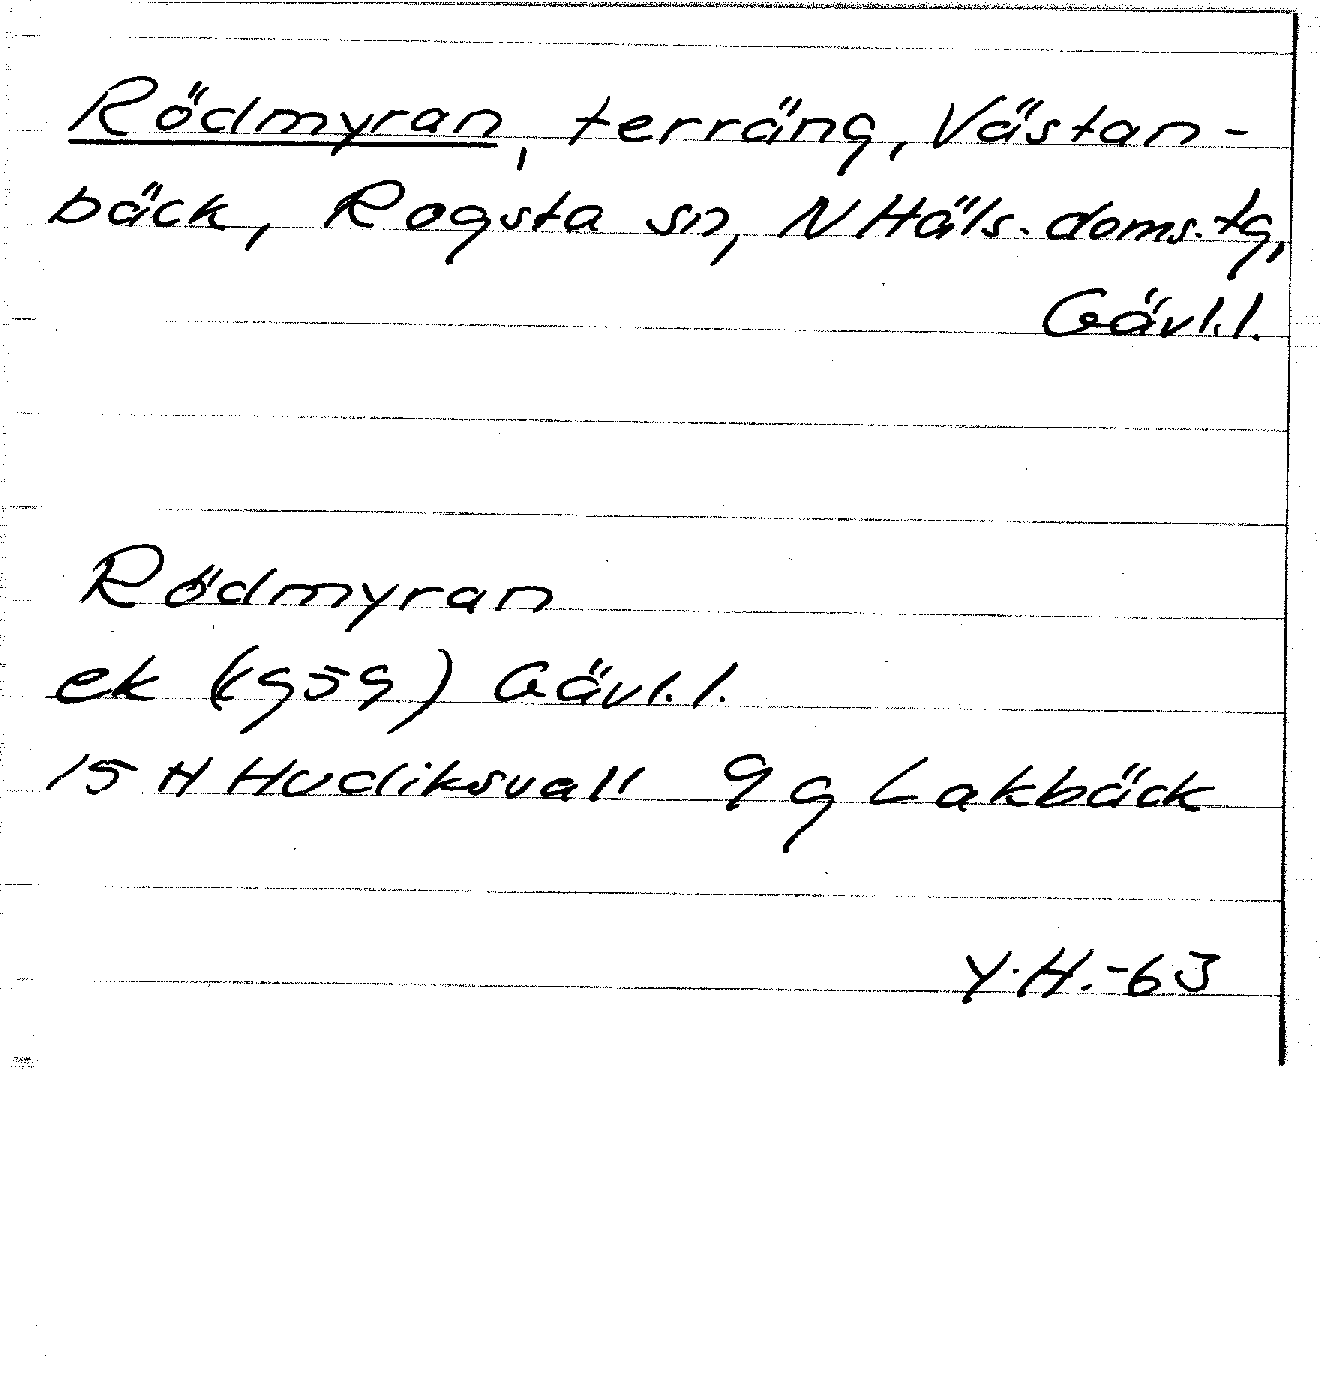 Rödmyran, terräng, Västan-
bäck, Rogsta sn, N Häls. doms. tg,
Gävl. l.
Rödmyran
ek (1959) Gävl. l.
15 H Hudiksvall 9 g Lakbäck
Y. H. -63